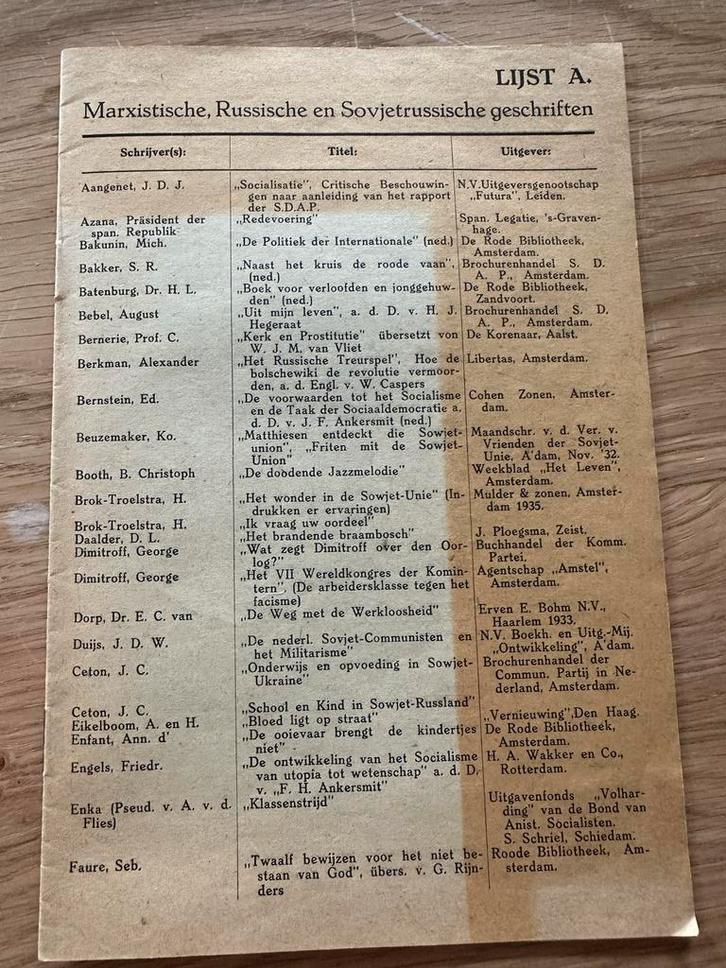 LIJST A.
Marxistische, Russische en Sovjetrussische geschriften
Schrijver(s): Titel: Uitgever:
Aangenet, J. D. J. „Socialisatie", Critische Beschouwin- N.V.Uitgeversgenootschap
gen naar aanleiding van het rapport „Futura", Leiden.
der S.D.A.P.
Azana, Präsident der „Redevoering" Span. Legatie, 's-Graven-
span. Republik hage.
Bakunin, Mich. „De Politiek der Internationale" (ned.) De Rode Bibliotheek,
Amsterdam.
Bakker, S. R. „Naast het kruis de roode vaan", Brochurenhandel S. D.
(ned.) A. P., Amsterdam.
Batenburg, Dr. H. L. „Boek voor verloofden en jonggehuw- De Rode Bibliotheek,
den" (ned.) Zandvoort.
Bebel, August „Uit mijn leven", a. d. D. v. H. J. Brochurenhandel S. D.
Hegeraat A. P., Amsterdam.
Bernerie, Prof. C. „Kerk en Prostitutie" übersetzt von De Korenaar, Aalst.
W. J. M. van Vliet
Berkman, Alexander „Het Russische Treurspel", Hoe de Libertas, Amsterdam.
bolschewiki de revolutie vermoor-
den, a. d. Engl. v. W. Caspers
Bernstein, Ed. „De voorwaarden tot het Socialisme Cohen Zonen, Amster-
en de Taak der Sociaaldemocratie a. dam.
d. D. v. J. F. Ankersmit (ned.)
Beuzemaker, Ko. „Matthiesen entdeckt die Sowjet- Maandschr. v. d. Ver. v.
union", „Friten mit de Sowjet- Vrienden der Sovjet-
Union" Unie, A'dam, Nov. '32.
Booth, B. Christoph „De dobdende Jazzmelodie" Weekblad „Het Leven",
Amsterdam.
Brok-Troelstra, H. „Het wonder in de Sowjet-Unie" (In- Mulder & zonen, Amster-
drukken er ervaringen) dam 1935.
Brok-Troelstra, H. „Ik vraag uw oordeel"
Daalder, D. L. „Het brandende braambosch" J. Ploegsma, Zeist.
Dimitroff, George „Wat zegt Dimitroff over den Oor- Buchhandel der Komm.
log?" Partei.
Dimitroff, George „Het VII Wereldkongres der Komin- Agentschap „Amstel",
tern". (De arbeidersklasse tegen het Amsterdam.
facisme)
Dorp, Dr. E. C. van „De Weg met de Werkloosheid" Erven E. Bohm N.V.,
Haarlem 1933.
Duijs, J. D. W. „De nederl. Sovjet-Communisten en N.V. Boekh. en Uitg.-Mij.
het Militarisme" „Ontwikkeling", A'dam.
Ceton, J. C. „Onderwijs en opvoeding in Sowjet- Brochurenhandel der
Ukraine" Commun. Partij in Ne-
derland, Amsterdam.
Ceton, J. C. „School en Kind in Sowjet-Russland"
Eikelboom, A. en H. „Bloed ligt op straat" „Vernieuwing",Den Haag.
Enfant, Ann. d' „De ooievaar brengt de kindertjes De Rode Bibliotheek,
niet" Amsterdam.
Engels, Friedr. „De ontwikkeling van het Socialisme H. A. Wakker en Co.,
van utopia tot wetenschap" a. d. D. Rotterdam.
v. „F. H. Ankersmit"
Enka (Pseud. v. A. v. d. „Klassenstrijd" Uitgavenfonds „Volhar-
Flies) ding" van de Bond van
Anist. Socialisten.
S. Schriel, Schiedam.
Faure, Seb. „Twaalf bewijzen voor het niet be- Roode Bibliotheek, Am-
staan van God", übers. v. G. Rijn- sterdam.
ders